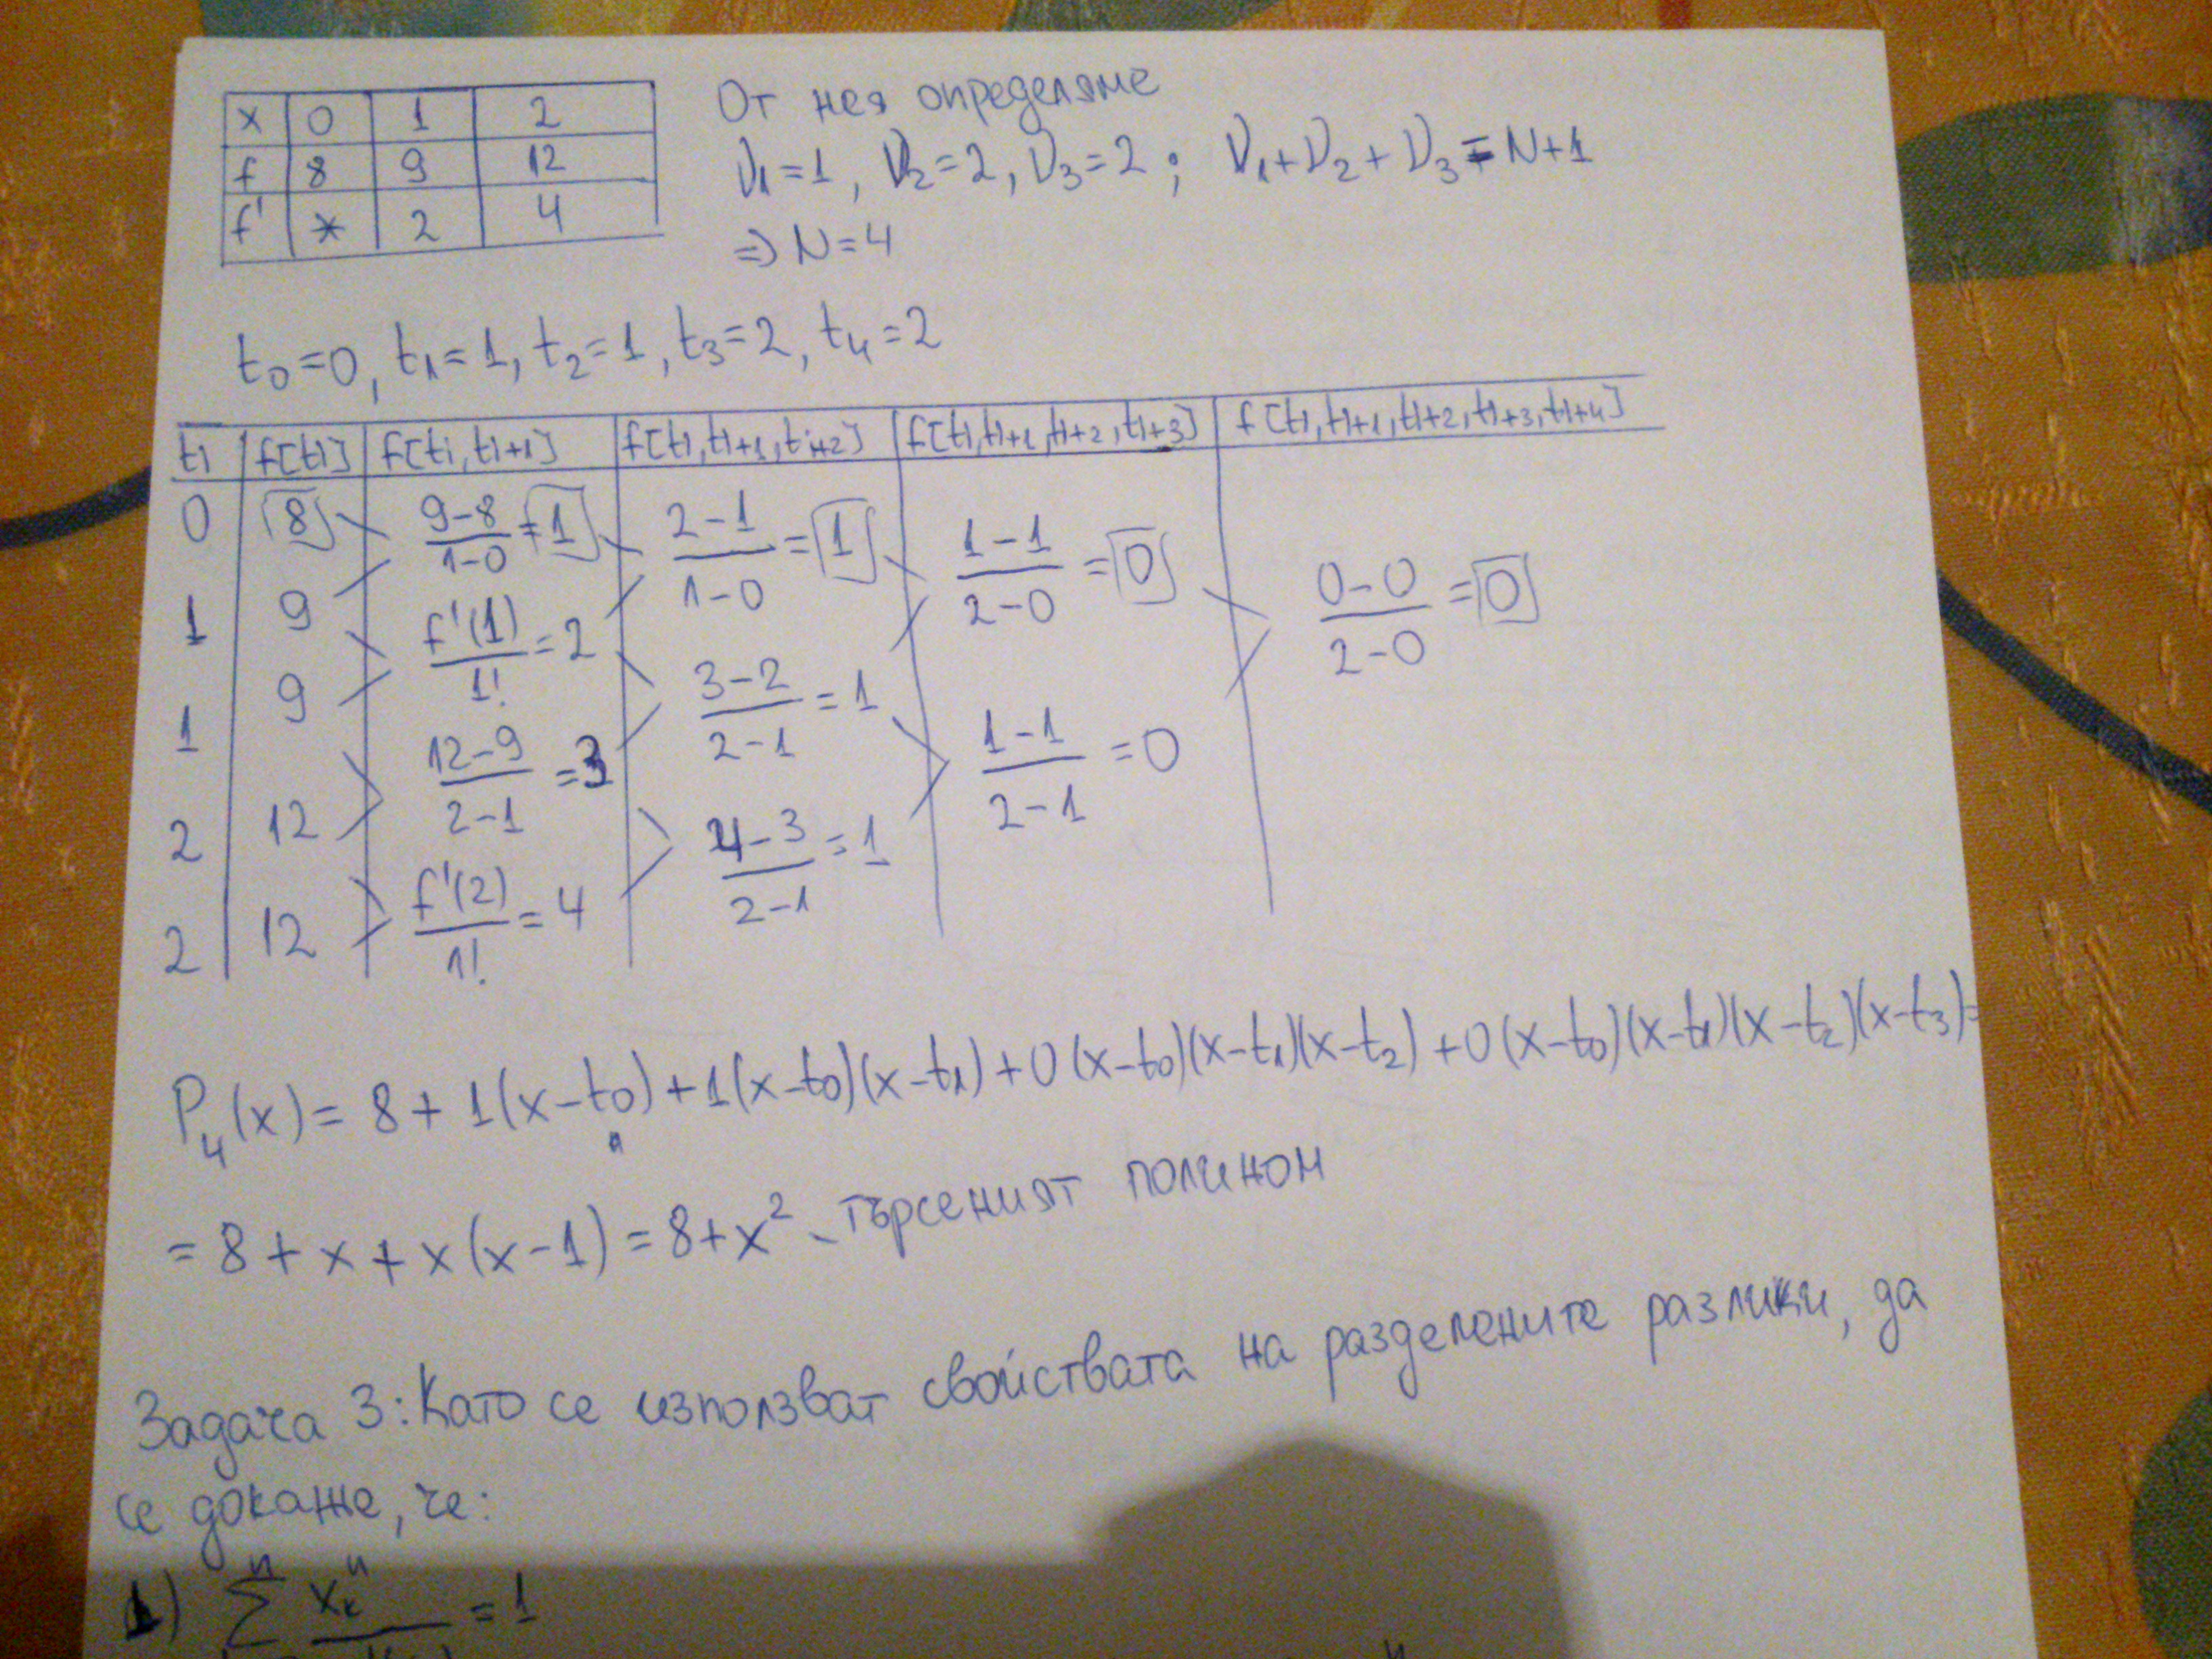 x 0 1 2
f 8 9 12
f' * 2 4
От нея определяме
ν₁=1, ν₂=2, ν₃=2; ν₁+ν₂+ν₃=N+1
⇒ N=4
t₀=0, t₁=1, t₂=1, t₃=2, t₄=2
ti f[ti] f[ti,ti+1] f[ti,ti+1,ti+2] f[ti,ti+1,ti+2,ti+3] f[ti,ti+1,ti+2,ti+3,ti+4]
0 8 (9-8)/(1-0)=1 (2-1)/(1-0)=1 (1-1)/(2-0)=0 (0-0)/(2-0)=0
1 9 f'(1)/1!=2 (3-2)/(2-1)=1 (1-1)/(2-1)=0
1 9 (12-9)/(2-1)=3 (4-3)/(2-1)=1
2 12 f'(2)/1!=4
2 12
P₄(x)=8+1(x-t₀)+1(x-t₀)(x-t₁)+0(x-t₀)(x-t₁)(x-t₂)+0(x-t₀)(x-t₁)(x-t₂)(x-t₃)=
=8+x+x(x-1)=8+x² - търсеният полином
Задача 3: Като се използват свойствата на разделените разлики, да
се докаже, че:
1) Σ xₖⁿ =1